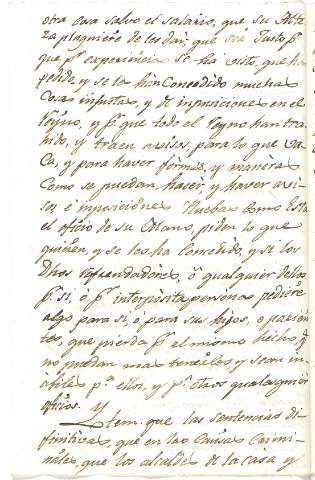 otra cosa salvo el salario, que su Alte
za plaguiere de les dar, que sea Justo pr
que pr experiencia se ha visto, que han
pedido, y se le han Concedido muchas
Cosas injustas, y de imposiciones en el
Reyno, y pr que todo el Reyno han tra
hido, y traen avisos, para lo que va
ca, y para haver formas, y manera
Como se puedan hacer, y haver avi
sos é imposiciones Nuebas como está
el oficio de su Mano, piden lo que
quieren, y se les ha Concedido, y si los
Dhos refrendadores, ó qualquier de los
pr si, ó pr interposita persona pediere
algo para si, ó para sus hijos, ó parien
tes, que pierda pr el mismo hecho, y
no puedan mas tenerlos y sean in
abiles pa ellos, y pa otros qualesquier
oficios. Y
Ytem. que las sentencias di
finitivas, que en las Causas Crimi
nales, que los alcaldes de la casa y